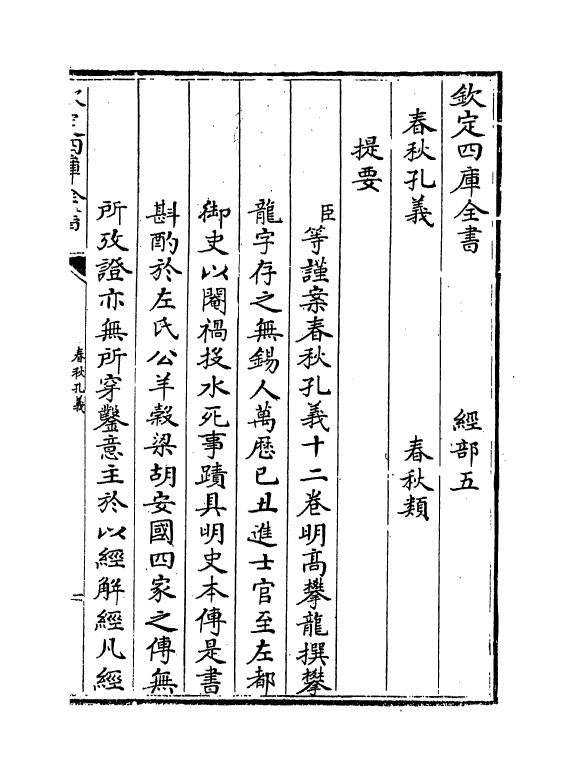 欽定四庫全書　經部五
春秋孔義　春秋類
提要
臣等謹案春秋孔義十二卷明高攀龍撰攀
龍字存之無錫人萬厯己丑進士官至左都
御史以閹禍投水死事蹟具明史本傳是書
斟酌於左氏公羊榖梁胡安國四家之傳無
所攷證亦無所穿鑿意主於以經解經凡經
欽定四庫全書
春秋孔義
一